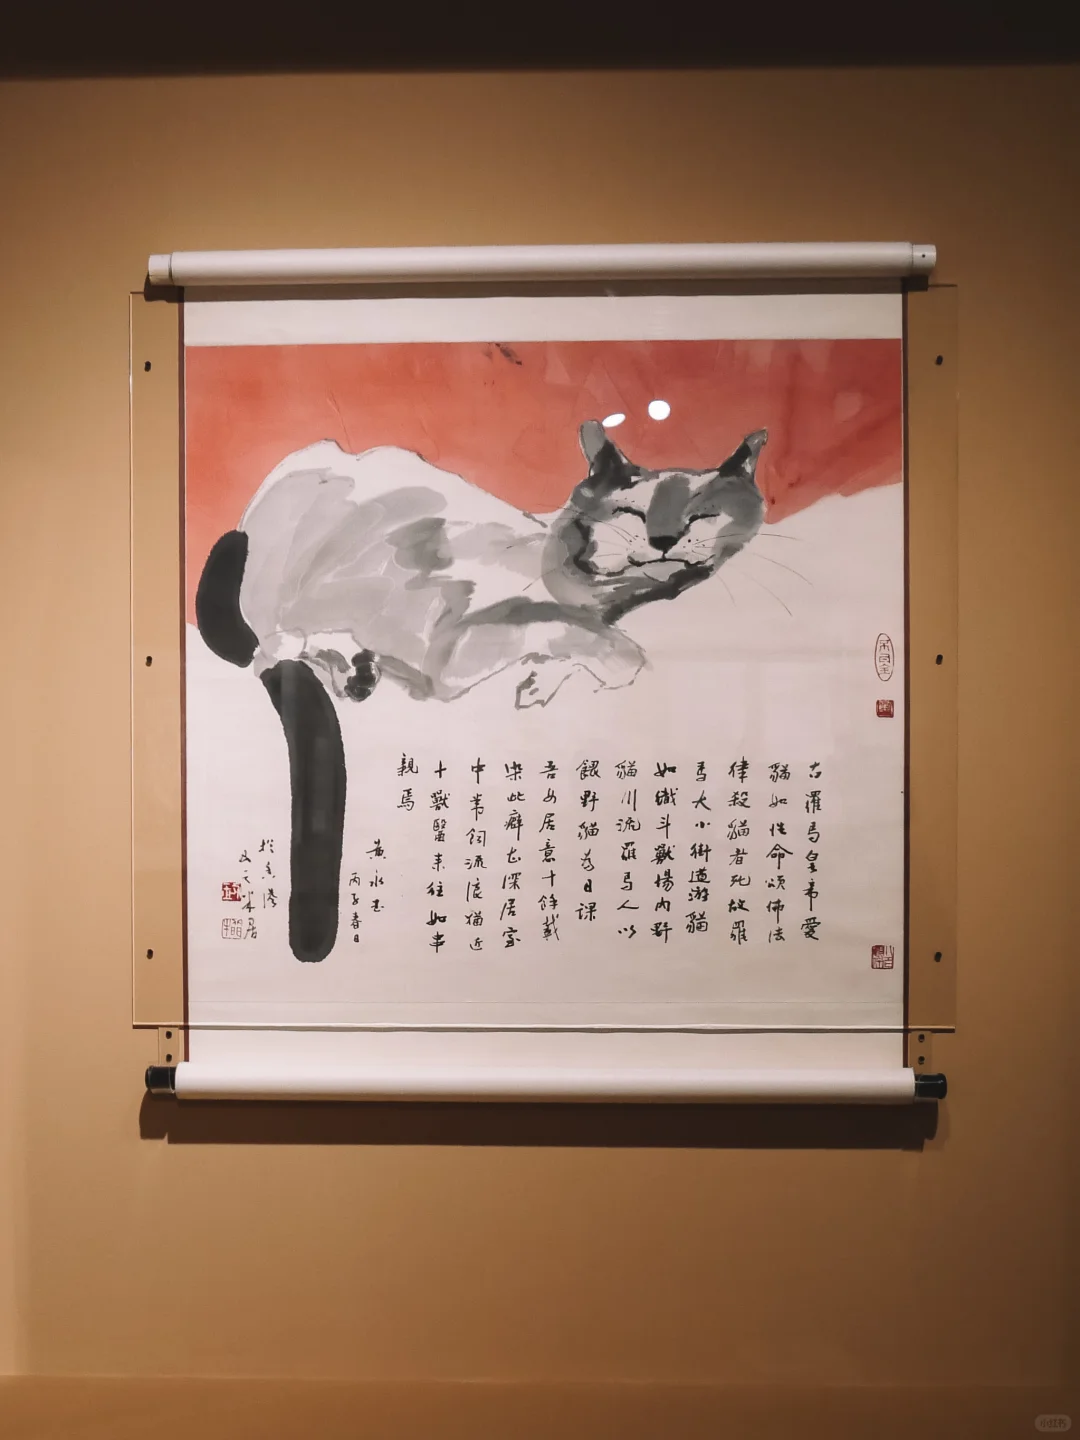 古羅馬皇帝愛
貓如性命頒佈法
律殺貓者死故羅
馬大小街道游貓
如織斗獸場内野
貓川流羅馬人以
餵野貓為日課
吾女居意十餘載
染此癖在深居室
中常飼流浪猫近
十獸醫来往如事
親焉
黃永玉
丙子春日
於香港
小红书